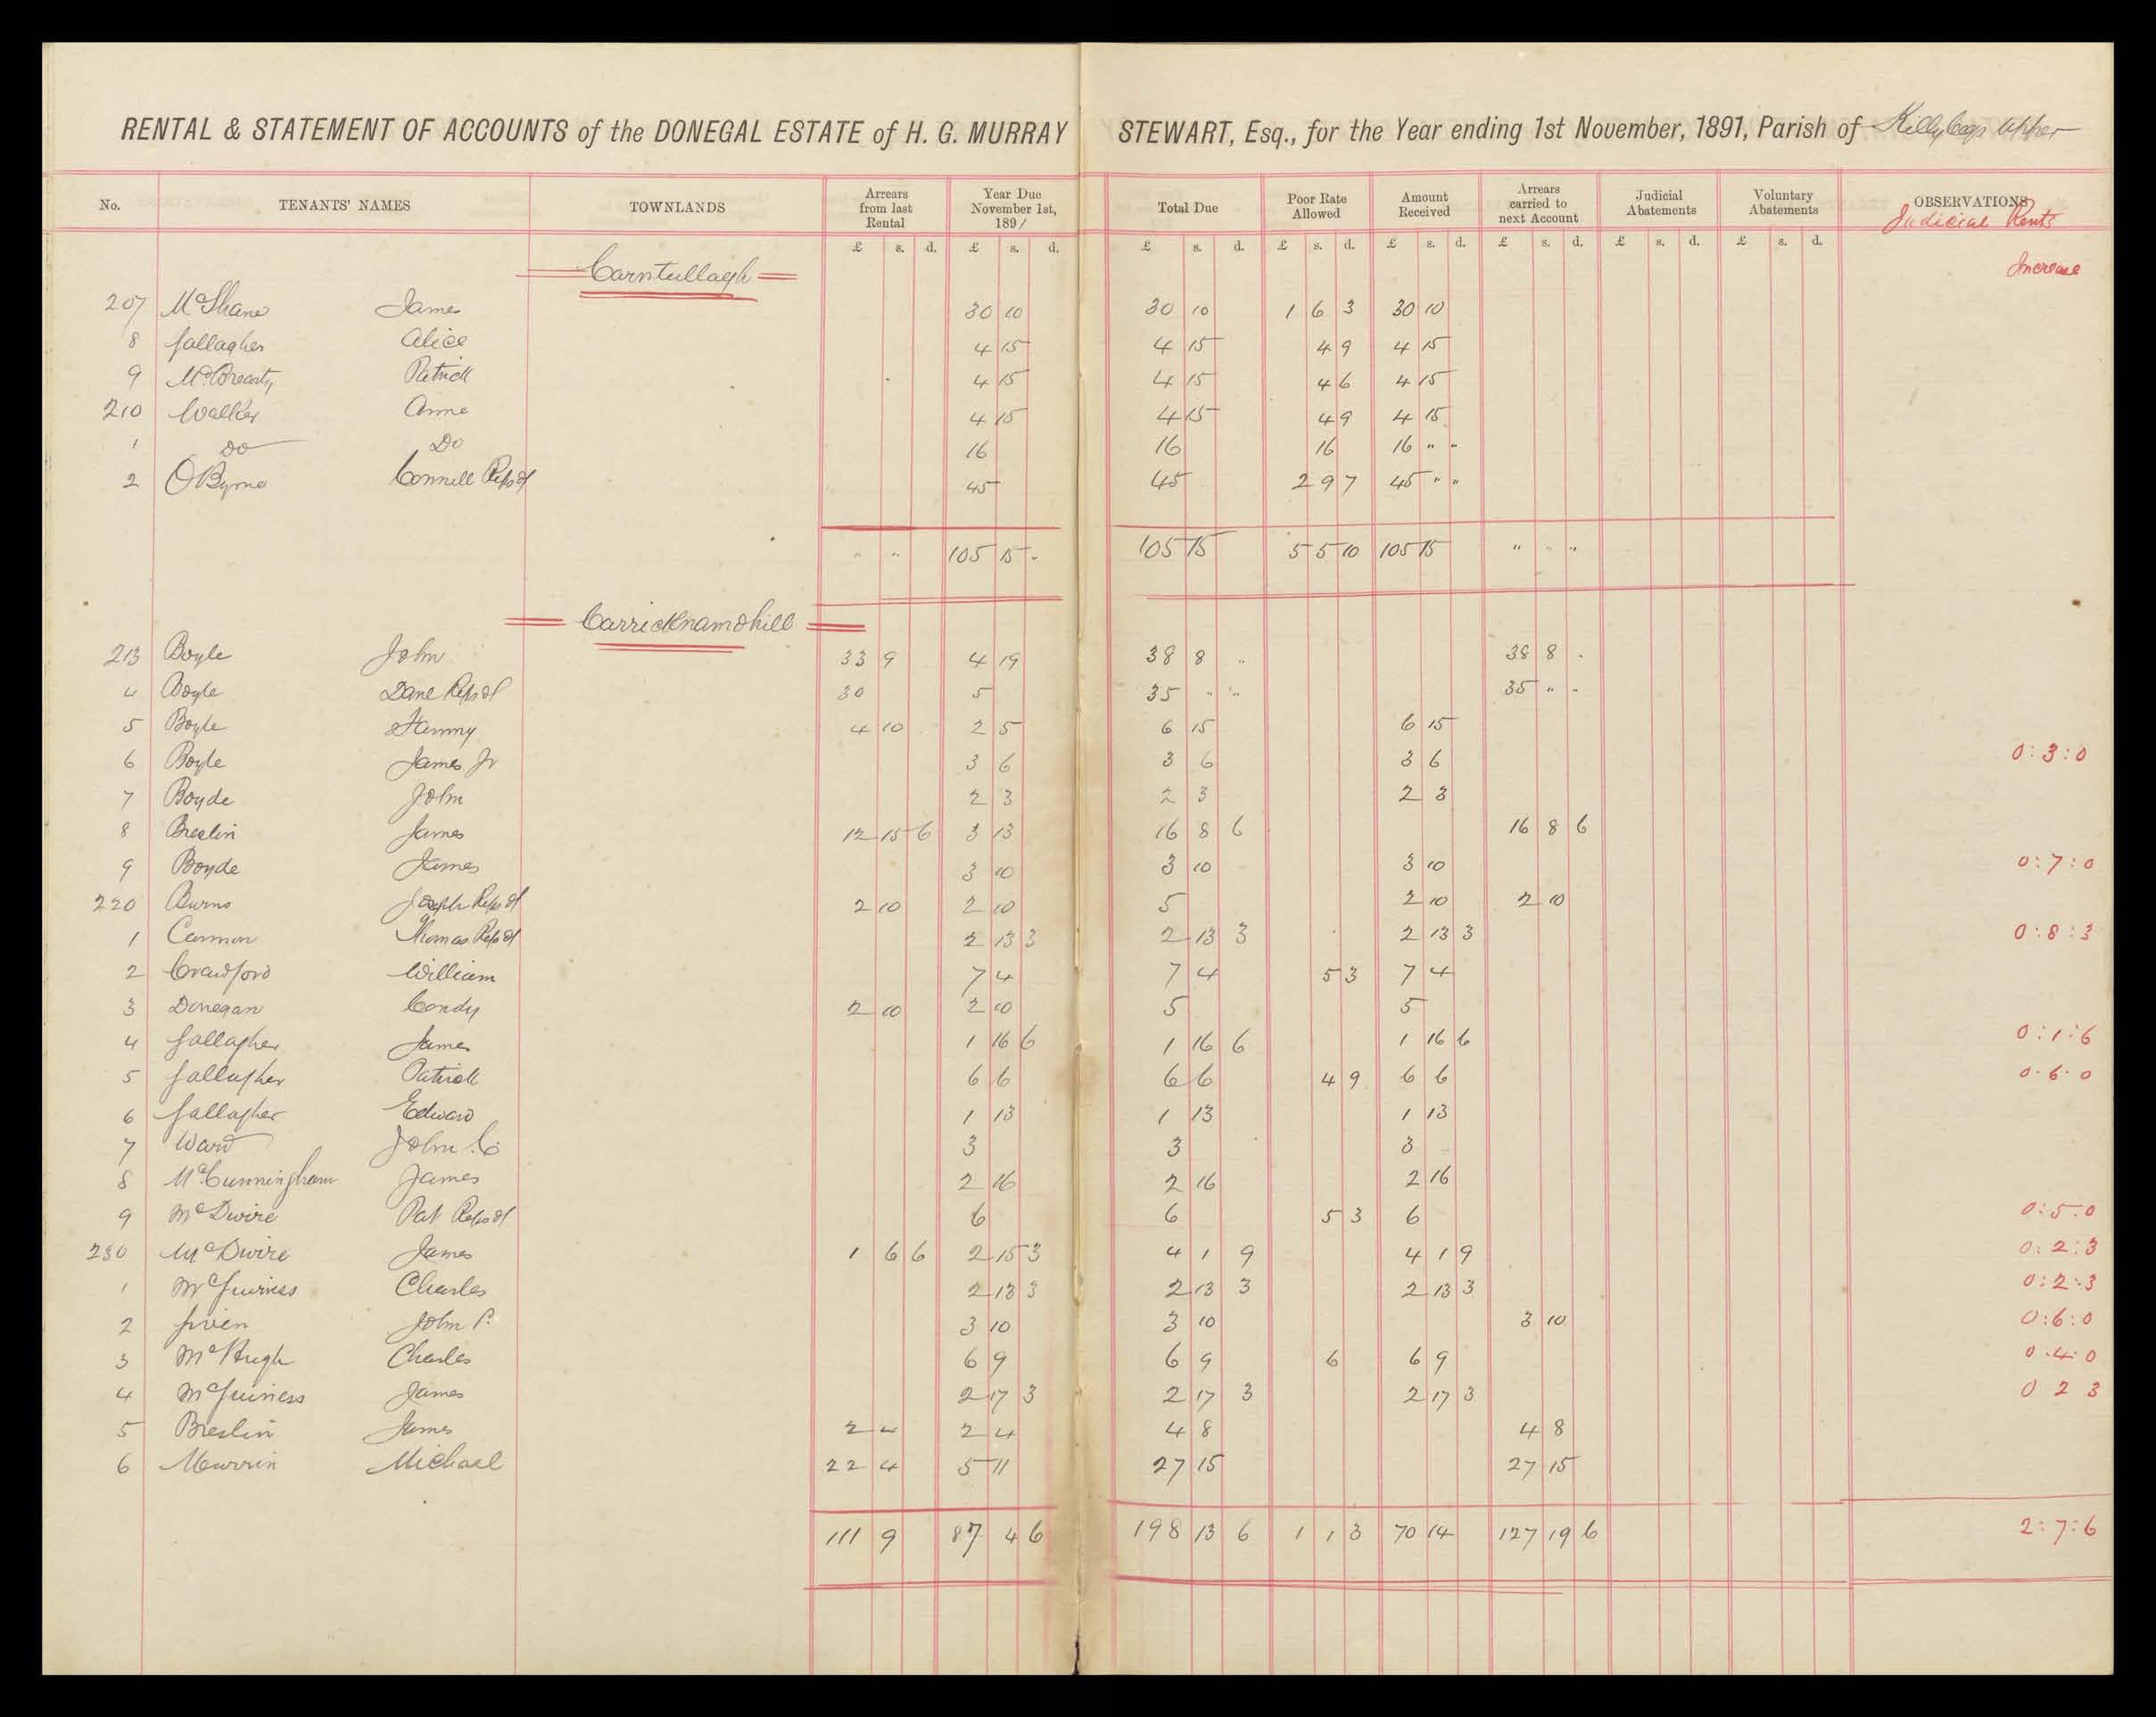 RENTAL & STATEMENT OF ACCOUNTS of the DONEGAL ESTATE of H. G. MURRAY STEWART, Esq., for the Year ending 1st November, 1891, Parish of Killybegs Upper
No. TENANTS' NAMES TOWNLANDS Arrears from last Rental Year Due November 1st, 1891 Total Due Poor Rate Allowed Amount Received Arrears carried to next Account Judicial Abatements Voluntary Abatements OBSERVATIONS
Judicial Rents
£ s. d. £ s. d. £ s. d. £ s. d. £ s. d. £ s. d. £ s. d. £ s. d.
Carntullagh Increase
207 McShane James 30 10 30 10 1 6 3 30 10
8 Gallagher Alice 4 15 4 15 4 9 4 15
9 McBrearty Patrick 4 15 4 15 4 6 4 15
210 Walker Anne 4 15 4 15 4 9 4 15
1 Do Do 16 16 16 16 " "
2 OByrne Connell Reps of 45 45 2 9 7 45 " "
" " 105 15 - 105 15 5 5 10 105 15 " " "
Carricknamohill
213 Boyle John 33 9 4 19 38 8 " 38 8 -
4 Boyle Dane Reps of 30 5 35 " " 35 " "
5 Boyle Hammy 4 10 2 5 6 15 6 15
6 Boyle James Jr 3 6 3 6 3 6 0:3:0
7 Boyde John 2 3 2 3 2 3
8 Breslin James 12 15 6 3 13 16 8 6 16 8 6
9 Boyde James 3 10 3 10 3 10 0:7:0
220 Burns Joseph Reps of 2 10 2 10 5 2 10 2 10
1 Cannon Thomas Reps of 2 13 3 2 13 3 2 13 3 0:8:3
2 Crawford William 7 4 7 4 5 3 7 4
3 Donegan Condy 2 10 2 10 5 5
4 Gallagher James 1 16 6 1 16 6 1 16 6 0:1:6
5 Gallagher Patrick 6 6 6 6 4 9 6 6 0.6.0
6 Gallagher Edward 1 13 1 13 1 13
7 Ward John C 3 3 3
8 McCunningham James 2 16 2 16 2 16
9 McDwire Pat Reps of 6 6 5 3 6 0:5:0
230 McDwire James 1 6 6 2 15 3 4 1 9 4 1 9 0:2:3
1 McGuiness Charles 2 13 3 2 13 3 2 13 3 0:2:3
2 Given John P. 3 10 3 10 3 10 0:6:0
3 McHugh Charles 6 9 6 9 6 6 9 0.4:0
4 McGuiness James 2 17 3 2 17 3 2 17 3 0 2 3
5 Breslin James 2 4 2 4 4 8 4 8
6 Murrin Michael 22 4 5 11 27 15 27 15
111 9 87 4 6 198 13 6 1 1 3 70 14 127 19 6 2:7:6